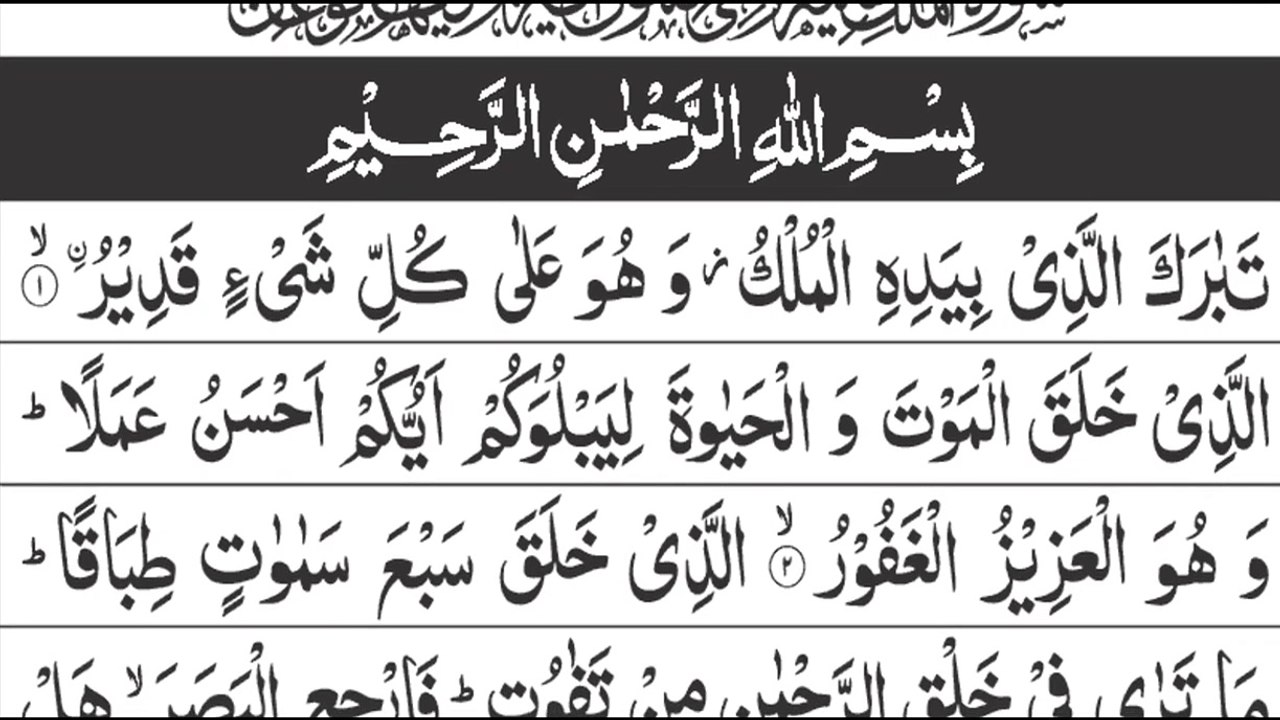 بِسْمِ اللهِ الرَّحْمٰنِ الرَّحِيْمِ
تَبٰرَكَ الَّذِىْ بِيَدِهِ الْمُلْكُ ز وَ هُوَ عَلٰى كُلِّ شَىْءٍ قَدِيْرُ ۨ ۙ ۱
الَّذِىْ خَلَقَ الْمَوْتَ وَ الْحَيٰوةَ لِيَبْلُوَكُمْ اَيُّكُمْ اَحْسَنُ عَمَلًا ؕ
وَ هُوَ الْعَزِيْزُ الْغَفُوْرُ ۙ ۲ الَّذِىْ خَلَقَ سَبْعَ سَمٰوٰتٍ طِبَاقًا ؕ
مَا تَرٰى فِىْ خَلْقِ الرَّحْمٰنِ مِنْ تَفٰوُتٍ ؕ فَارْجِعِ الْبَصَرَ ۙ هَلْ